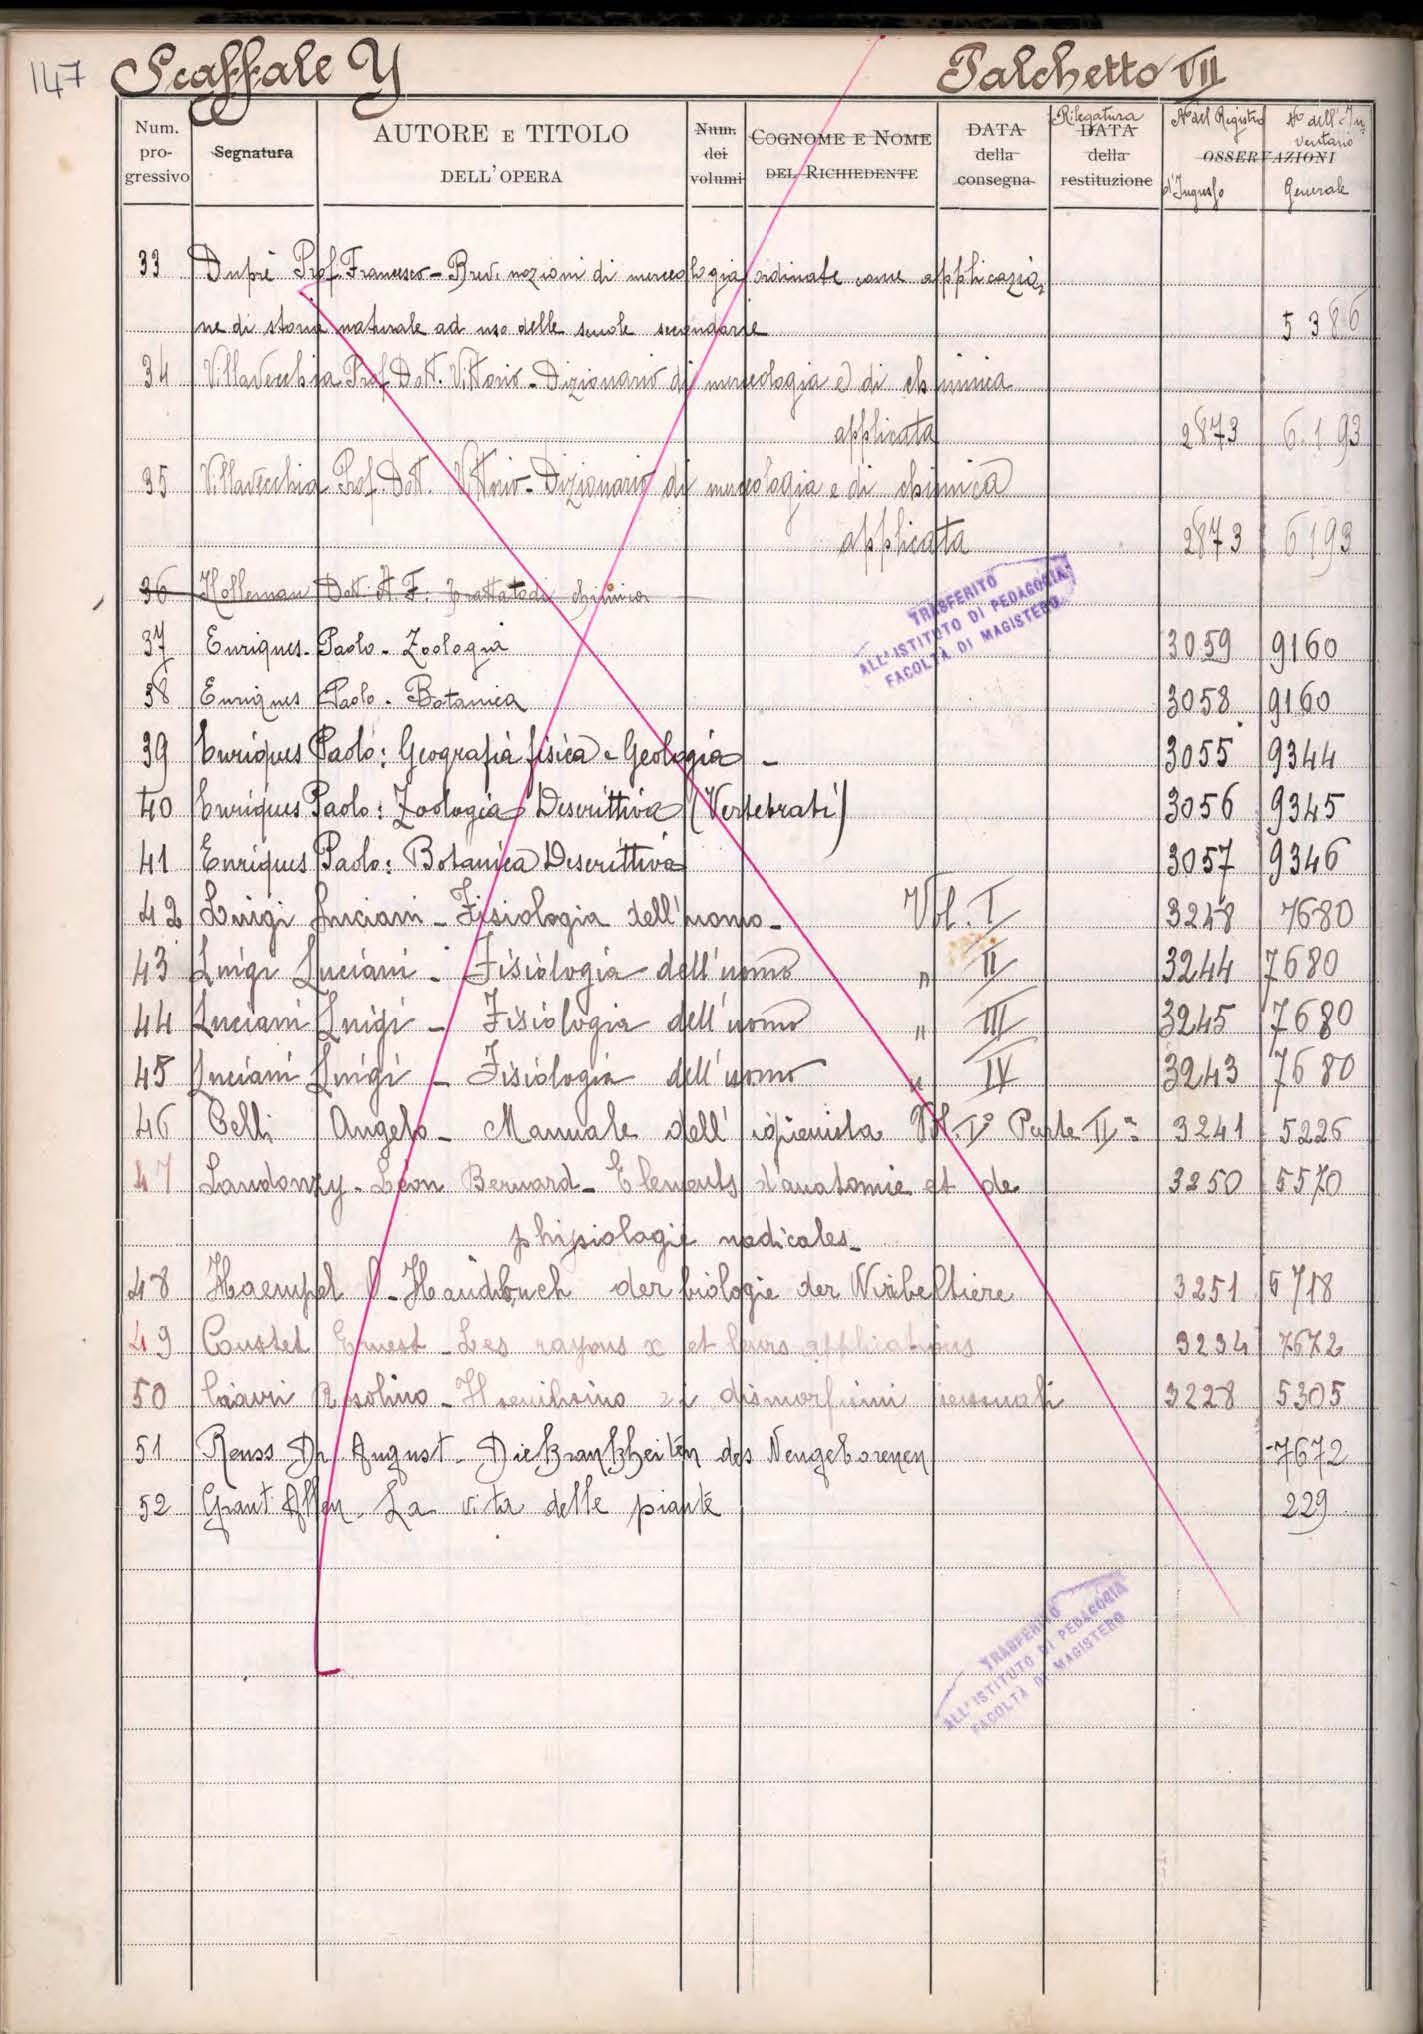 147 Scaffale Y Palchetto VII
Num. progressivo Segnatura AUTORE E TITOLO DELL'OPERA Num. dei volumi COGNOME E NOME DEL RICHIEDENTE DATA della consegna Rilegatura DATA della restituzione OSSERVAZIONI No del Registro d'Ingresso No dell'Inventario Generale
33 Duprè Prof. Francesco - Brevi nozioni di merceologia ordinate come applicazio
ne di storia naturale ad uso delle scuole secondarie 5386
34 Villavecchia Prof. Dott. Vittorio - Dizionario di merceologia e di chimica
applicata 2873 6193
35 Villavecchia Prof. Dott. Vittorio - Dizionario di merceologia e di chimica
applicata 2873 6193
36 Holleman Dott. A. F. Trattato di chimica
TRASFERITO
ALL'ISTITUTO DI PEDAGOGIA
FACOLTÀ DI MAGISTERO
37 Enriques - Paolo - Zoologia 3059 9160
38 Enriques Paolo - Botanica 3058 9160
39 Enriques Paolo: Geografia fisica e Geologia - 3055 9344
40 Enriques Paolo: Zoologia Descrittiva (Vertebrati) 3056 9345
41 Enriques Paolo: Botanica Descrittiva 3057 9346
42 Luigi Luciani - Fisiologia dell'uomo - Vol. I 3248 7680
43 Luigi Luciani - Fisiologia dell'uomo " II 3244 7680
44 Luciani Luigi - Fisiologia dell'uomo " III 3245 7680
45 Luciani Luigi - Fisiologia dell'uomo " IV 3243 7680
46 Celli Angelo - Manuale dell'igienista Vol. I° Parte IIa 3241 5226
47 Landonzy - Léon Bernard - Elements d'anatomie et de 3250 5570
phisiologie medicales -
48 Haempel O - Handbuch der biologie der Wirbeltiere 3251 5718
49 Coustet Ernest - Les rayons x et leurs applications 3234 7672
50 Rosolino - dismorfismi sessuali 3228 5305
51 Reuss Dr. August - Die Krankheiten des Neugeborenen 7672
52 Grant Allen - La vita delle piante 229
TRASFERITO
ALL'ISTITUTO DI PEDAGOGIA
FACOLTÀ DI MAGISTERO